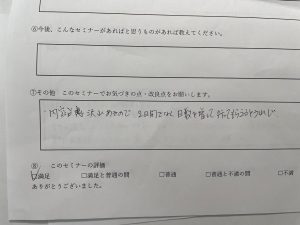 ⑥今後、こんなセミナーがあればと思うものがあれば教えてください。
⑦その他 このセミナーでお気づきの点・改良点をお願いします。
内容が 沢山あるので 2日間でなく 日数を増やして 行ってもらう
⑧ このセミナーの評価
☑満足 □満足と普通の間 □普通 □普通と不満の間 □不満
ありがとうございました。